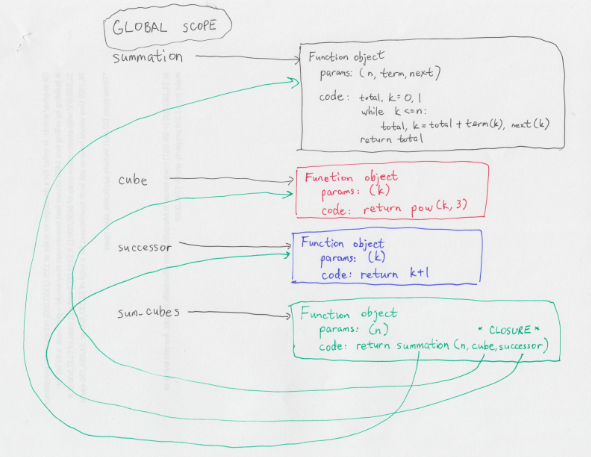 GLOBAL SCOPE
summation
Function object
params: (n, term, next)
code: total, k = 0, 1
while k <= n:
total, k = total + term(k), next(k)
return total
cube
Function object
params: (k)
code: return pow(k, 3)
successor
Function object
params: (k)
code: return k+1
sum_cubes
Function object
params: (n)
* CLOSURE *
code: return summation (n, cube, successor)